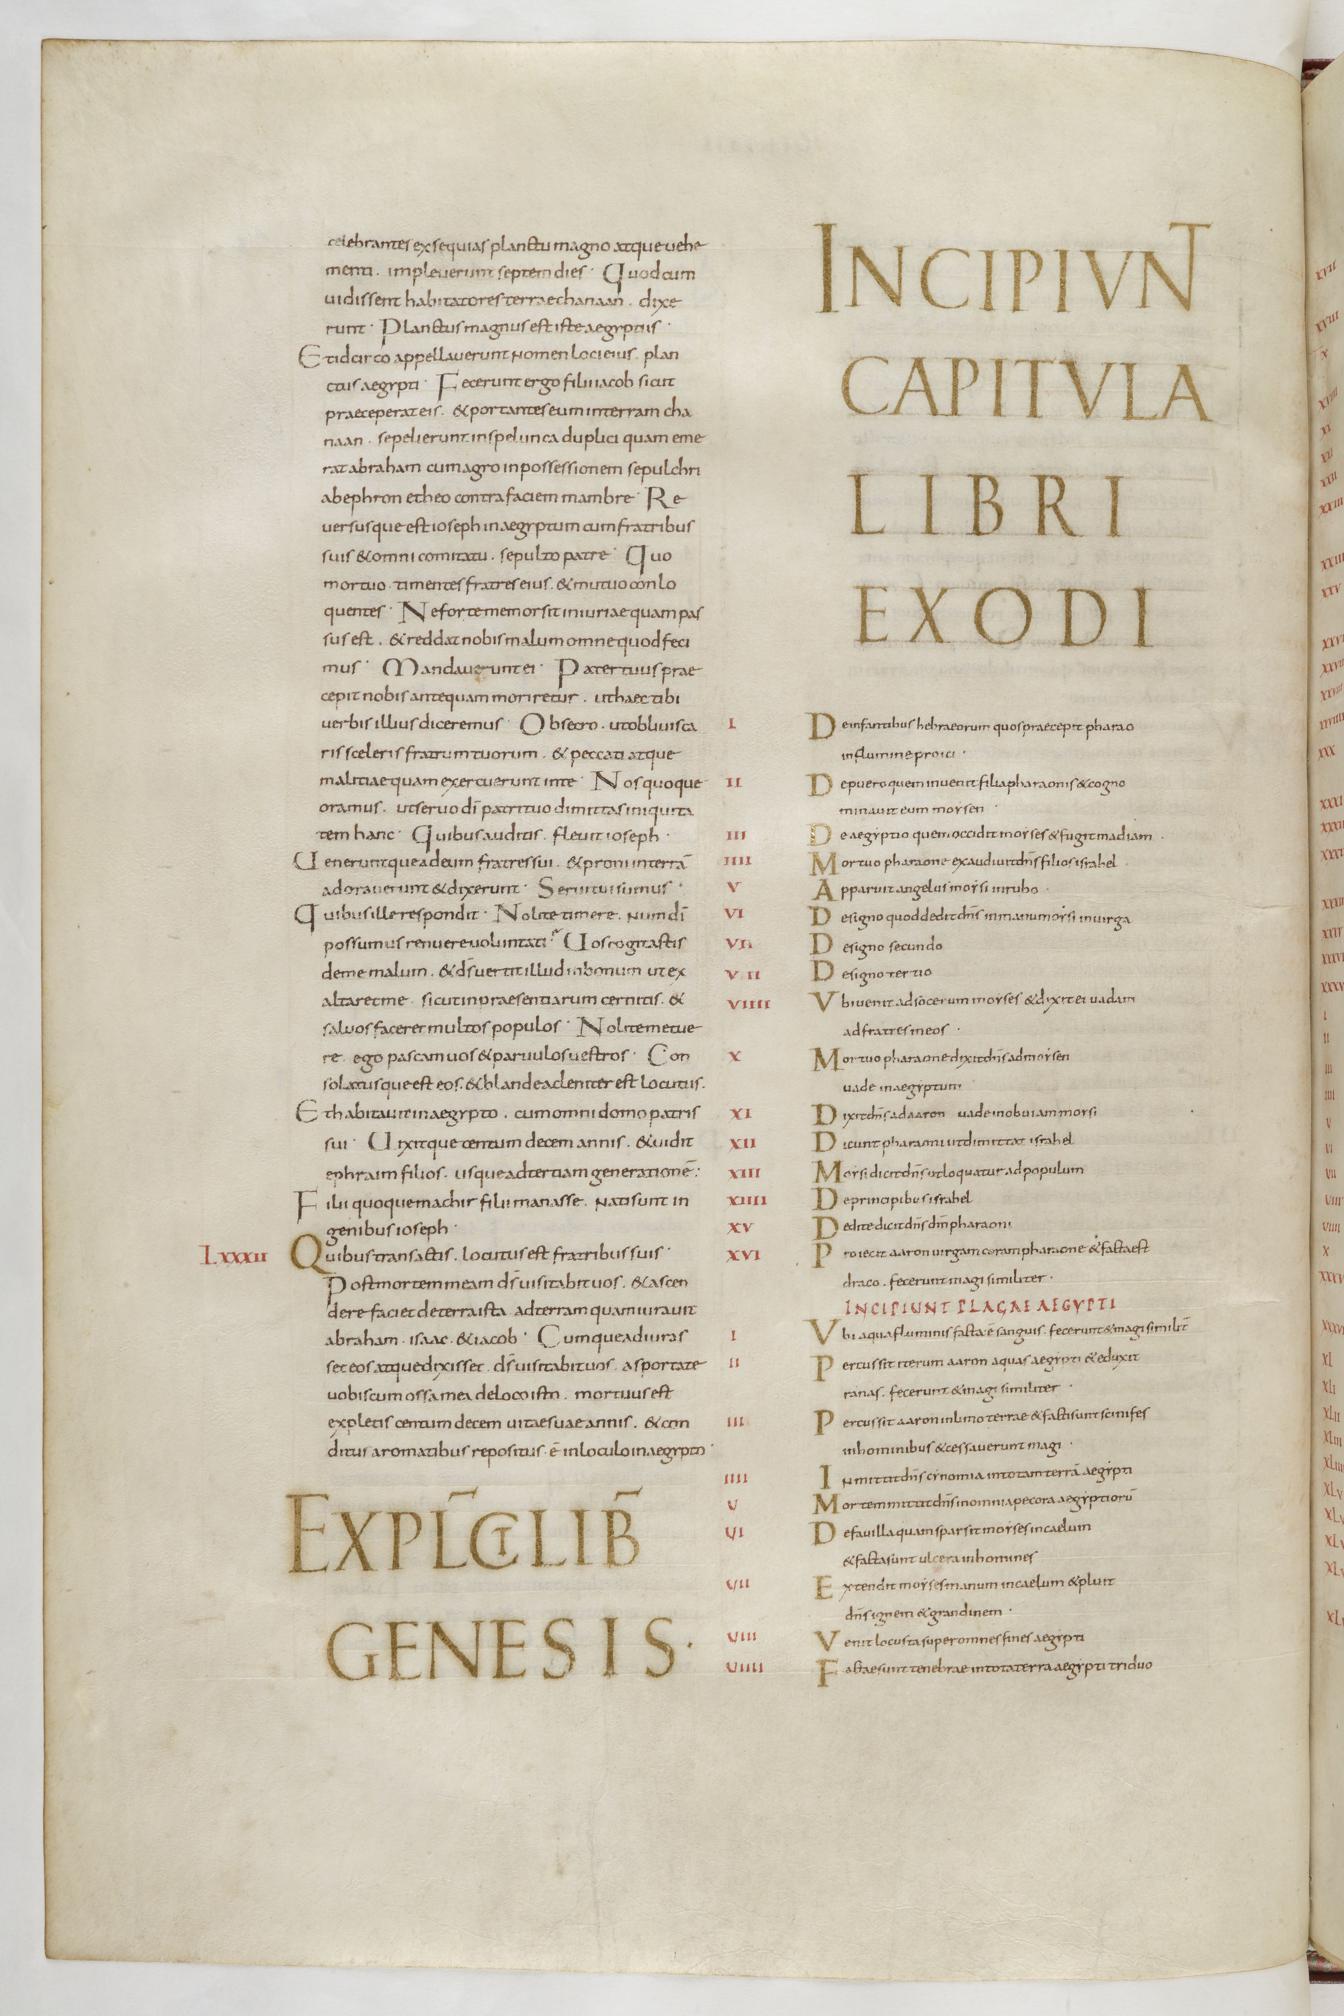 celebrantes exsequias planctu magno atque vehe
menti. impleverunt septem dies· Quod cum
vidissent habitatores terrae chanaan. dixe
runt· Planctus magnus est iste aegyptiis·
Et idcirco appellaverunt nomen loci eius. plan
ctus aegypti· Fecerunt ergo filii iacob sicut
praeceperat eis. & portantes eum in terram cha
naan. sepelierunt in spelunca duplici quam eme
rat abraham cum agro in possessionem sepulchri
ab ephron etheo contra faciem mambre· Re
versusque est ioseph in aegyptum cum fratribus
suis & omni comitatu. sepulto patre· Quo
mortuo. timentes fratres eius. & mutuo conlo
quentes· Ne forte memor sit iniuriae quam pas
sus est. & reddat nobis malum omne quod feci
mus· Mandaverunt ei· Pater tuus prae
cepit nobis antequam moriretur. ut haec tibi
verbis illius diceremus· Obsecro. ut obliuisca
ris sceleris fratrum tuorum. & peccati atque
malitiae quam exercuerunt in te· Nos quoque
oramus. ut servo dī patri tuo dimittas iniquita
tem hanc· Quibus auditis. flevit ioseph·
Ueneruntque ad eum fratres sui. & proni in terrā
adoraverunt & dixerunt· Servi tui sumus·
Quibus ille respondit· Nolite timere. num dī
possumus renuere voluntati· Uos cogitastis
de me malum. & ds̄ vertit illud in bonum ut ex
altaret me. sicut in praesentiarum cernitis. &
salvos faceret multos populos· Nolite metue
re. ego pascam vos & parvulos vestros· Con
solatusque est eos. & blande ac leniter est locutus.
Et habitavit in aegypto. cum omni domo patris
sui· Uixitque centum decem annis. & vidit
ephraim filios. usque ad tertiam generationē:
Filii quoque machir filii manasse. nati sunt in
genibus ioseph·
Lxxxii Quibus transactis. locutus est fratribus suis·
Post mortem meam ds̄ visitabit vos. & ascen
dere faciet de terra ista. ad terram quam iuravit
abraham. isaac. & iacob· Cumque adiuras
set eos atque dixisset. ds̄ visitabit vos. asportate
vobiscum ossa mea de loco isto. mortuus est
expletis centum decem vitae suae annis. & con
ditus aromatibus repositus. ē in loculo in aegypto·
EXPLICIT LIB̄
GENESIS·
INCIPIUNT
CAPITVLA
LIBRI
EXODI
I De infantibus hebraeorum quos praecepit pharao
in flumine proici·
II De puero quem invenit filia pharaonis & cogno
minavit eum moysen·
III De aegyptio quem occidit moyses & fugit madiam.
IIII Mortuo pharaone exaudivit dn̄s filios israhel
V Apparuit angelus moysi in rubo·
VI De signo quod dedit dn̄s in manu moysi in virga
VII De signo secundo
VIII De signo tertio
VIIII Vbi venit ad socerum moyses & dixit ei vadam
ad fratres meos·
X Mortuo pharaone dixit dn̄s ad moysen
vade in aegyptum·
XI Dixit dn̄s ad aaron vade in obviam moysi
XII Dicunt pharaoni ut dimittat israhel
XIII Moysi dicit dn̄s ut loquatur ad populum
XIIII De principibus israhel
XV Dedite dicit dn̄s dm̄ pharaoni
XVI Proiecit aaron virgam coram pharaone & facta est
draco. fecerunt magi similiter·
INCIPIUNT PLAGAE AEGYPTI
I Vbi aqua fluminis facta ē sanguis. fecerunt & magi similit̄
II Percussit iterum aaron aquas aegypti & eduxit
ranas. fecerunt & magi similiter·
III Percussit aaron in limo terrae & facti sunt scinifes
in hominibus & cessaverunt magi·
IIII Inmittit dn̄s cynomia in totam terrā aegypti
V Mortem mittit dn̄s in omnia pecora aegyptiorū
VI De favilla quam sparsit moyses in caelum
& facta sunt ulcera in homines
VII Extendit moyses manum in caelum & pluit
dn̄s ignem & grandinem·
VIII Venit locusta super omnes fines aegypti
VIIII Factae sunt tenebrae in tota terra aegypti triduo